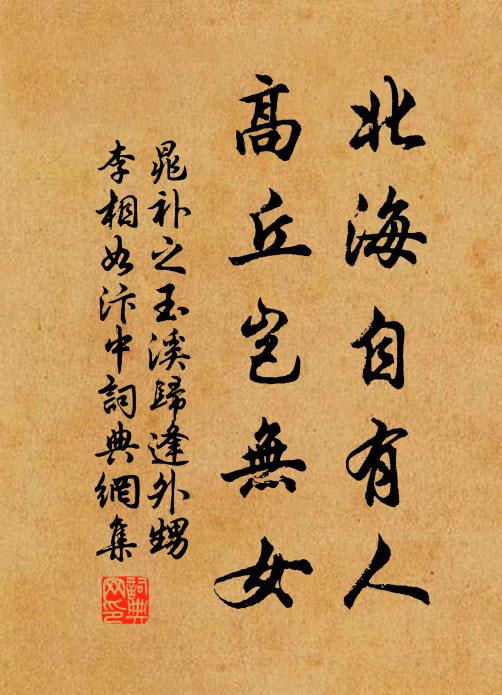 北海自有人
高丘岂無女
晁补之玉溪歸逢外甥
李相如汴中詞典網集
詞典网印